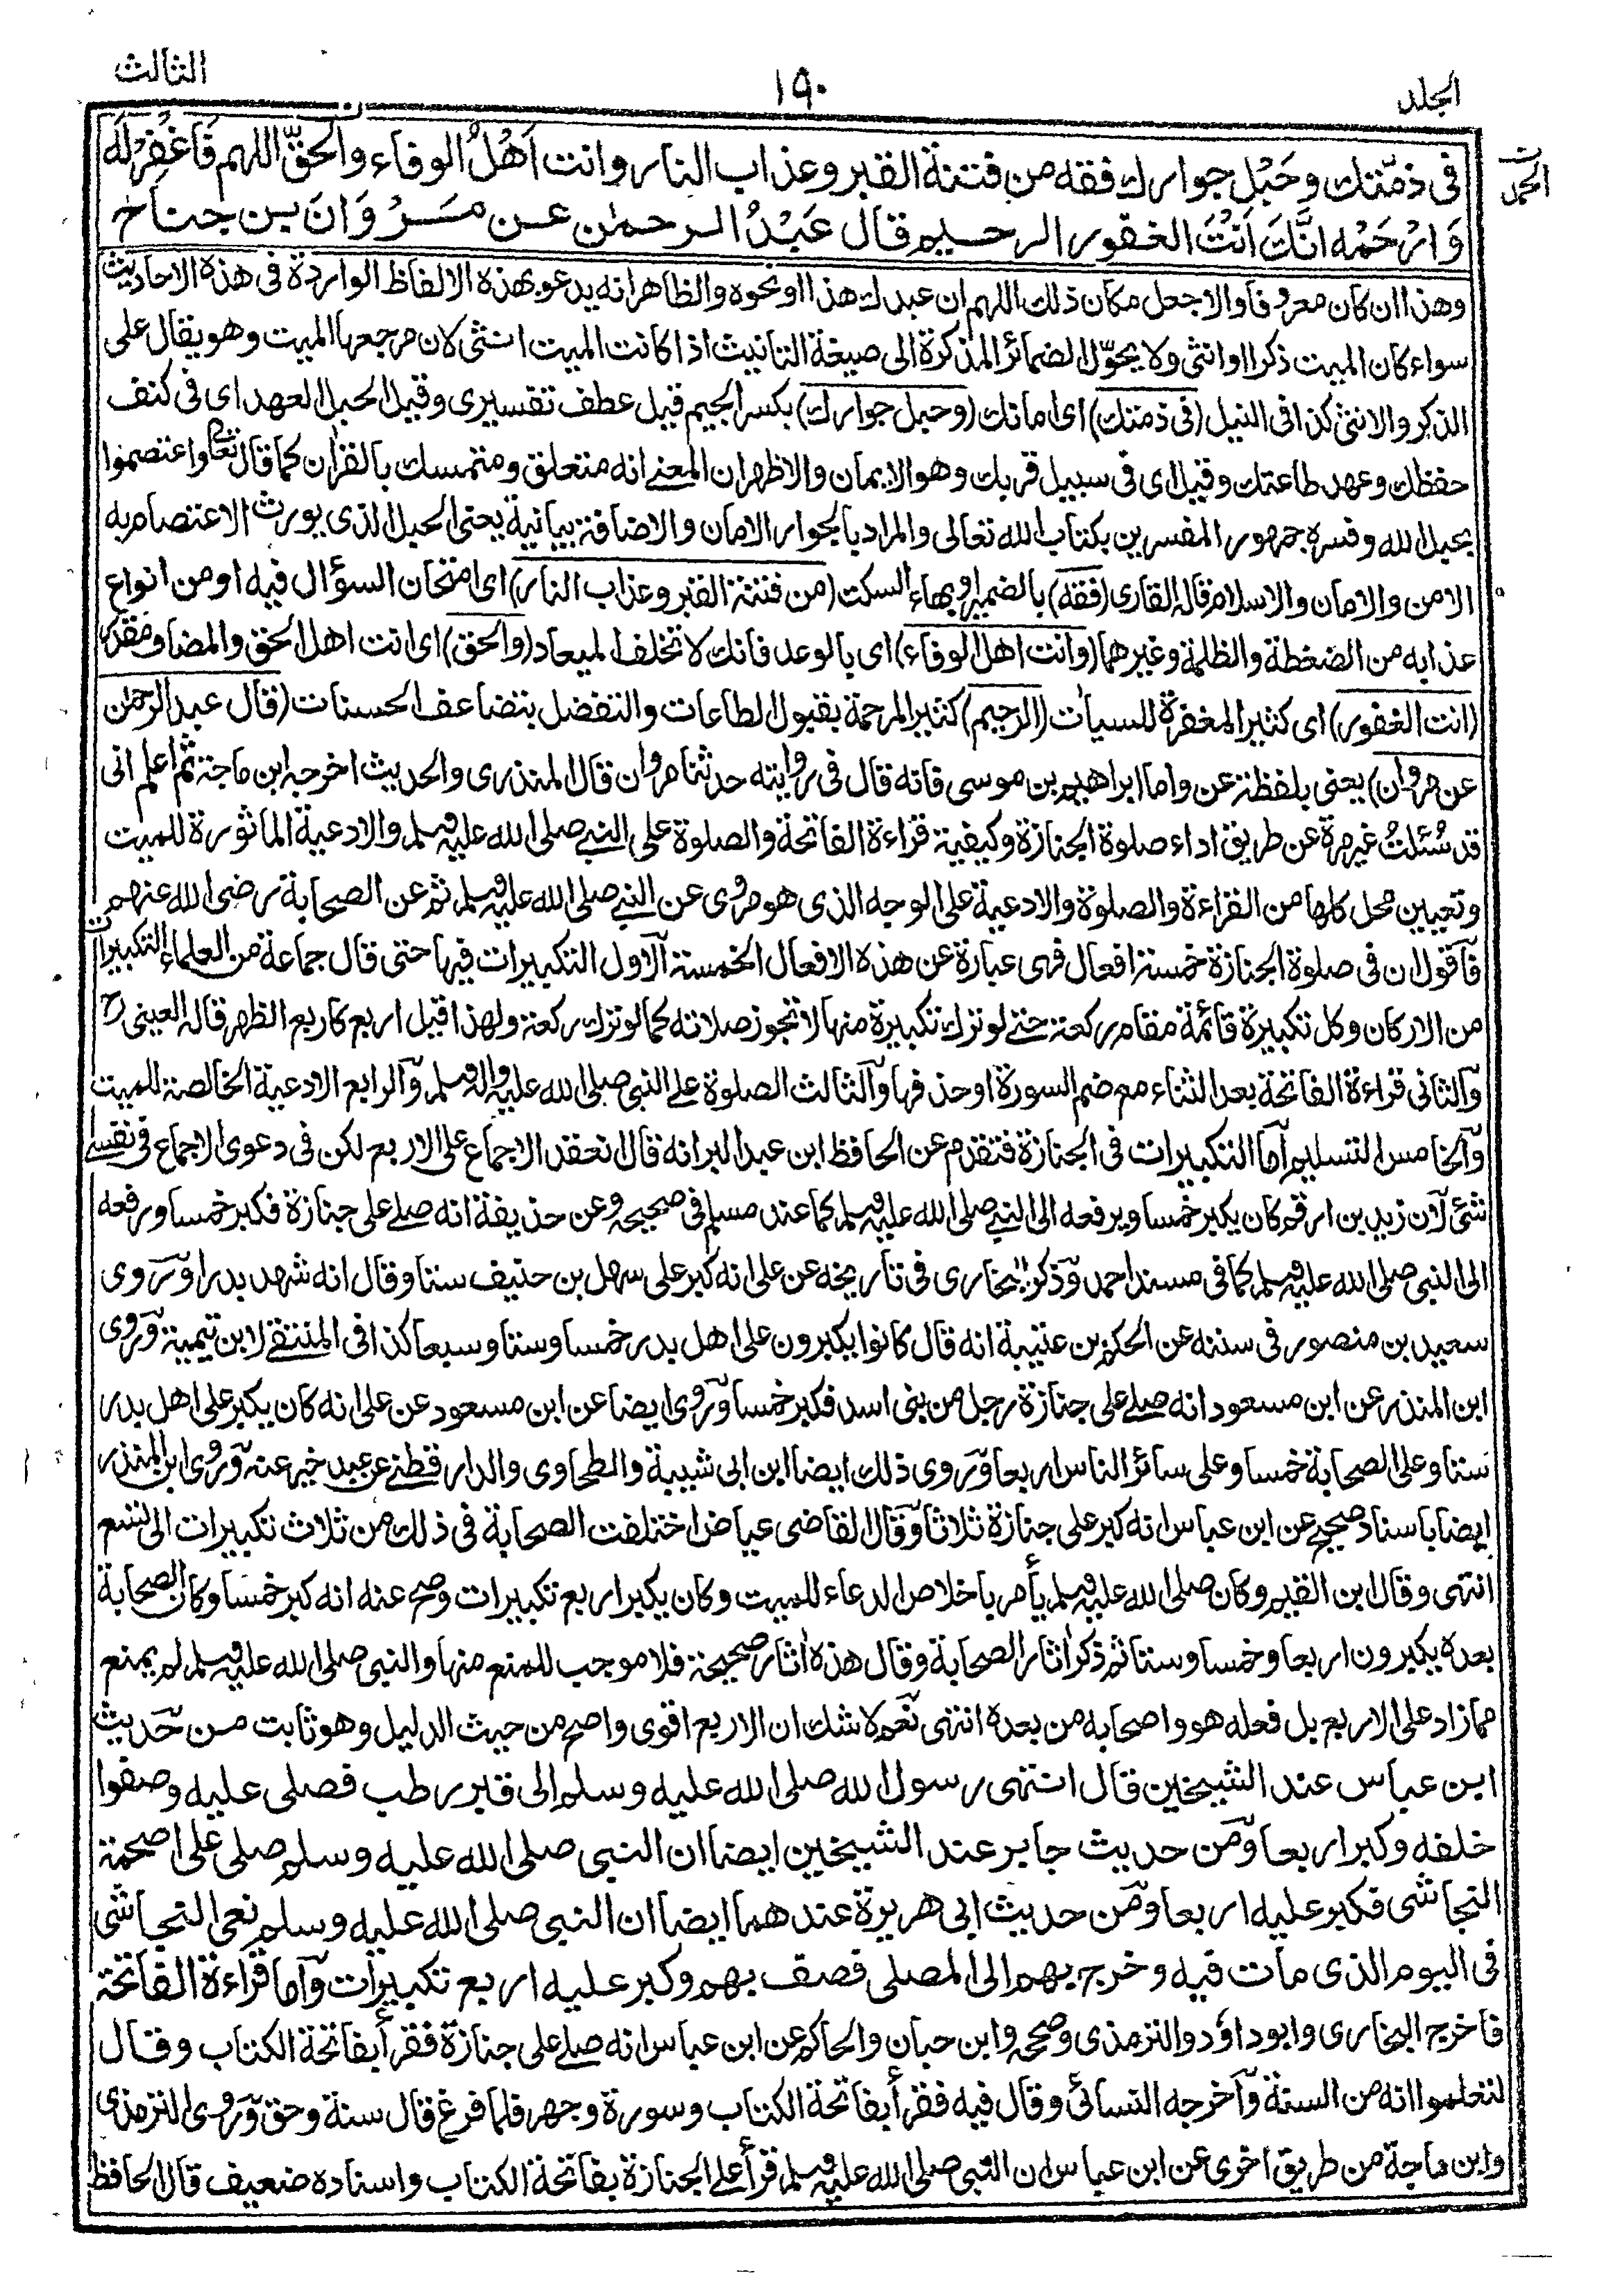 الثالث
١٩٠
المجلد
فى ذمتك وحَبْل جوارك فقه من فتنة القبر وعذاب النار وانت اَهْلُ الوفاء والحقّ اللهم فَاغْفِرْ لَه
الحمد
وَارْحَمْه انَّكَ اَنْتَ الغفور الرحيم قال عَبْدُ الرحمٰن عن مَرْوَانَ بن جناح
وهذا ان كان معروفا والا جعل مكان ذلك اللهم ان عبدك هذا او نحوه والظاهر انه يدعو بهذه الالفاظ الواردة فى هذه الاحاديث
سواء كان الميت ذكرا او انثى ولا يحوّل الضمائر المذكرة الى صيغة التانيث اذا كانت الميت انثى لان مرجعها الميت وهو يقال على
الذكر والانثى كذا فى النيل (فى ذمتك) اى امانك (وحبل جوارك) بكسر الجيم قيل عطف تفسيرى وقيل الحبل العهد اى فى كنف
حفظك وعهد طاعتك وقيل اى فى سبيل قربك وهو الايمان والاظهر ان المعنى انه متعلق ومتمسك بالقرآن كما قال تعالى واعتصموا
بحبل الله وفسره جمهور المفسرين بكتاب الله تعالى والمراد بالجوار الامان والاضافة بيانية يعنى الحبل الذى يورث الاعتصام به
الامن والامان والاسلام قاله القارى (فقه) بالضمير او بهاء السكت (من فتنة القبر وعذاب النار) اى امتحان السؤال فيه او من انواع
عذابه من الضغطة والظلمة وغيرهما (وانت اهل الوفاء) اى بالوعد فانك لا تخلف الميعاد (والحق) اى انت اهل الحق والمضاف مقدر
(انت الغفور) اى كثير المغفرة للسيأت (الرحيم) كثير المرحمة بقبول الطاعات والتفضل بتضاعف الحسنات (قال عبد الرحمٰن
عن مروان) يعنى بلفظة عن واما ابراهيم بن موسى فانه قال فى روايته حدثنا مروان قال المنذرى والحديث اخرجه ابن ماجة ثم اعلم انى
قد سُئلتُ غير مرة عن طريق اداء صلوة الجنازة وكيفية قراءة الفاتحة والصلوة على النبى صلى الله عليه وسلم والادعية الماثورة للميت
وتعيين محل كلها من القراءة والصلوة والادعية على الوجه الذى هو مروى عن النبى صلى الله عليه وسلم ثم عن الصحابة رضى الله عنهم
فآقول ان فى صلوة الجنازة خمسة افعال فهى عبارة عن هذه الافعال الخمسة آلاول التكبيرات فيها حتى قال جماعة من العلماء التكبيرات
من الاركان وكل تكبيرة قائمة مقام ركعة حتى لو ترك تكبيرة منها لا تجوز صلاته كما لو ترك ركعة ولهذا قيل اربع كاربع الظهر قاله العينى رح
وآلثانى قراءة الفاتحة بعد الثناء مع ضم السورة او حذفها وآلثالث الصلوة على النبى صلى الله عليه واله وسلم وآلرابع الادعية الخالصة للميت
وآلخامس التسليم آما التكبيرات فى الجنازة فتقدم عن الحافظ ابن عبد البر انه قال انعقد الاجماع على الاربع لكن فى دعوى الاجماع فى نفسى
شئ لآن زيد بن ارقم كان يكبر خمسا ويرفعه الى النبى صلى الله عليه وسلم كما عند مسلم فى صحيحه وعن حذيفة انه صلى على جنازة فكبر خمسا ورفعه
الى النبى صلى الله عليه وسلم كما فى مسند احمد وذكر البخارى فى تاريخه عن على انه كبر على سهل بن حنيف ستا وقال انه شهد بدرا وروى
سعيد بن منصور فى سننه عن الحكم بن عتيبة انه قال كانوا يكبرون على اهل بدر خمسا وستا وسبعا كذا فى المنتقى لابن تيمية وروى
ابن المنذر عن ابن مسعود انه صلى على جنازة رجل من بنى اسد فكبر خمسا وروى ايضا عن ابن مسعود عن على انه كان يكبر على اهل بدر
ستا وعلى الصحابة خمسا وعلى سائر الناس اربعا وروى ذلك ايضا ابن ابى شيبة والطحاوى والدارقطنى عن عبد خير عنه وروى ابن المنذر
ايضا باسناد صحيح عن ابن عباس انه كبر على جنازة ثلاثا وقال القاضى عياض اختلفت الصحابة فى ذلك من ثلاث تكبيرات الى تسع
انتهى وقال ابن القيم وكان صلى الله عليه وسلم يأمر باخلاص الدعاء للميت وكان يكبر اربع تكبيرات وصح عنه انه كبر خمسا وكان الصحابة
بعده يكبرون اربعا وخمسا وستا ثم ذكر اٰثار الصحابة وقال هذه اٰثار صحيحة فلا موجب للمنع منها والنبى صلى الله عليه وسلم لم يمنع
مما زاد على الاربع بل فعله هو واصحابه من بعده انتهى نعم لا شك ان الاربع اقوى واصح من حيث الدليل وهو ثابت من حديث
ابن عباس عند الشيخين قال انتهى رسول الله صلى الله عليه وسلم الى قبر رطب فصلى عليه وصفوا
خلفه وكبر اربعا ومن حديث جابر عند الشيخين ايضا ان النبى صلى الله عليه وسلم صلى على اصحمة
النجاشى فكبر عليه اربعا ومن حديث ابى هريرة عندهما ايضا ان النبى صلى الله عليه وسلم نعى النجاشى
فى اليوم الذى مات فيه وخرج بهم الى المصلى فصف بهم وكبر عليه اربع تكبيرات وآما قراءة الفاتحة
فاخرج البخارى وابو داؤد والترمذى وصححه وابن حبان والحاكم عن ابن عباس انه صلى على جنازة فقرأ بفاتحة الكتاب وقال
لتعلموا انه من السنة وآخرجه النسائى وقال فيه فقرأ بفاتحة الكتاب وسورة وجهر فلما فرغ قال سنة وحق وروى الترمذى
وابن ماجة من طريق اخرى عن ابن عباس ان النبى صلى الله عليه وسلم قرأ على الجنازة بفاتحة الكتاب واسناده ضعيف قال الحافظ